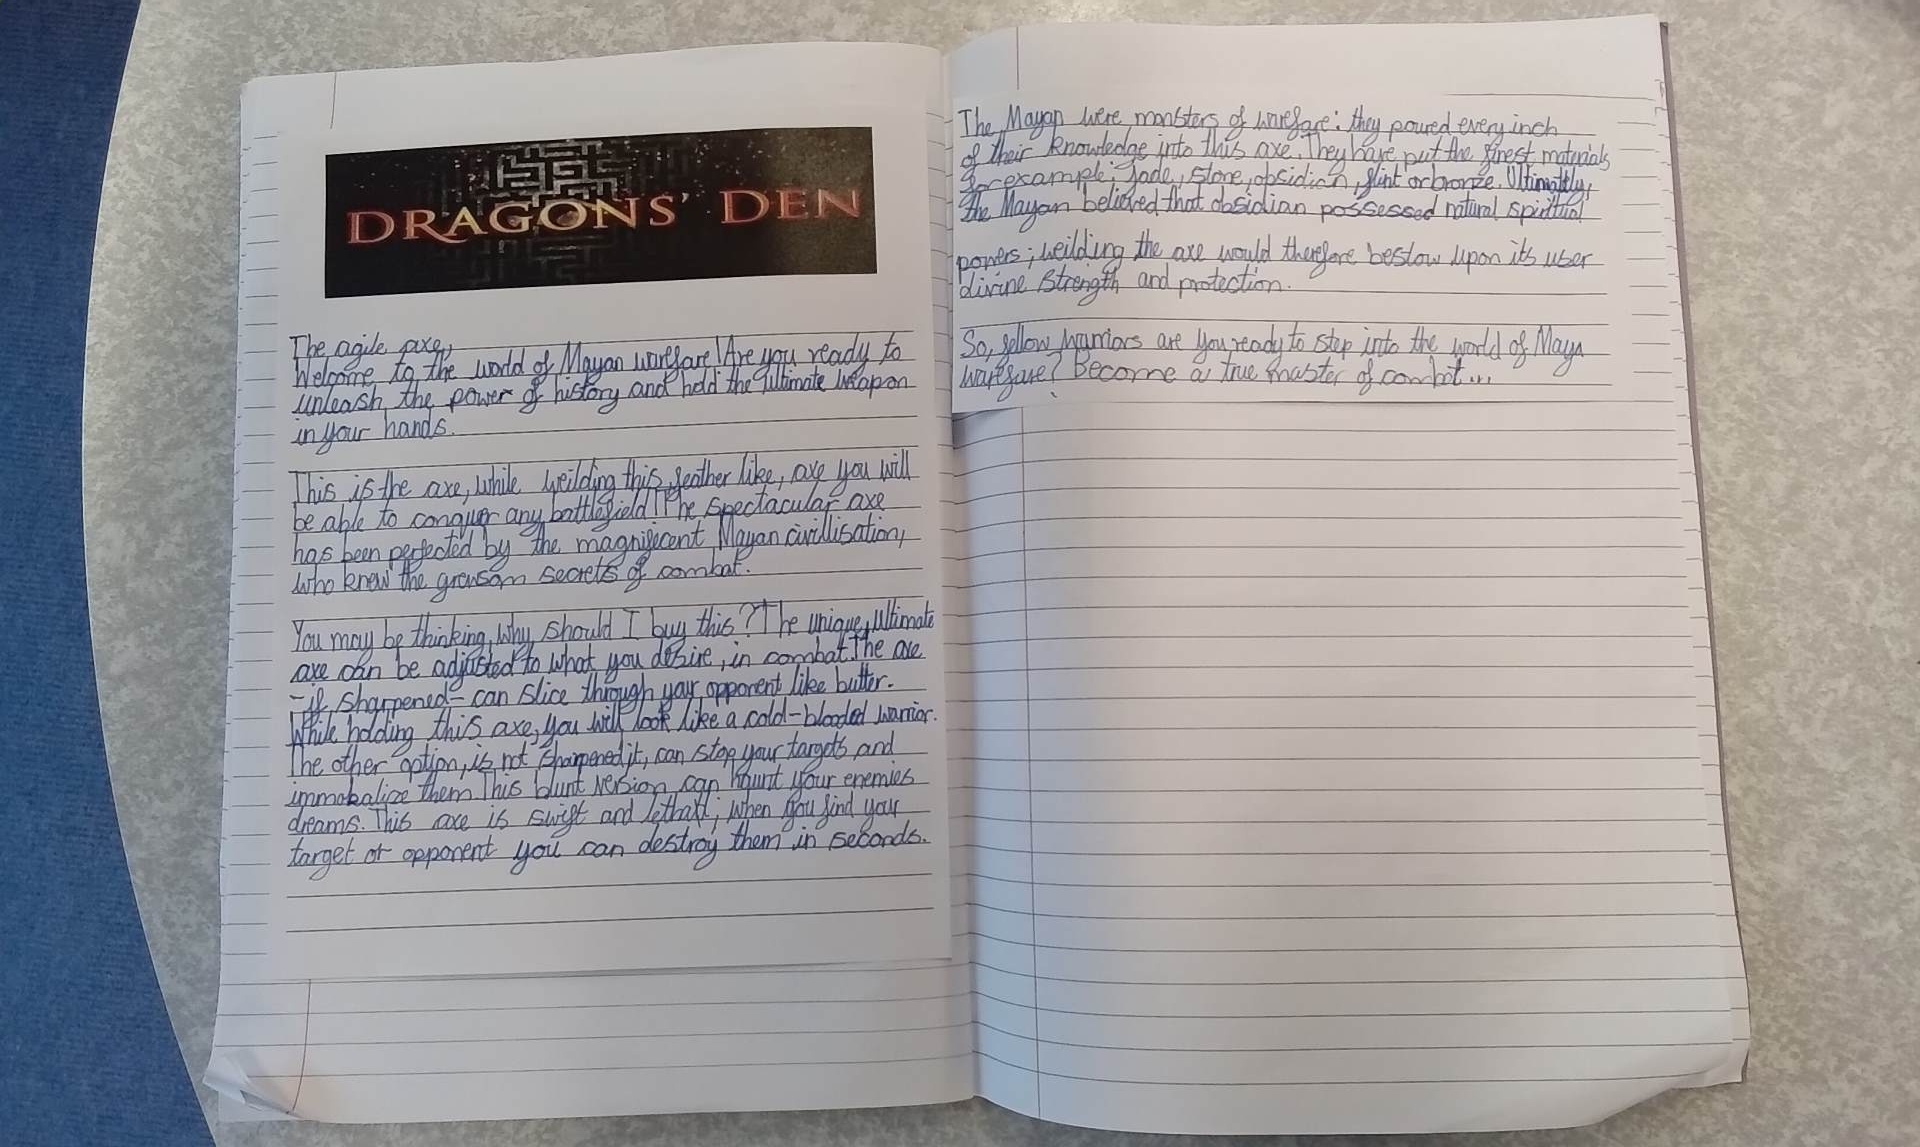 DRAGONS' DEN
The agile axe,
Welcome to the world of Mayan warfare! Are you ready to
unleash the power of history and hold the ultimate weapon
in your hands.
This is the axe, while weilding this feather like, axe you will
be able to conquer any battlefield! The spectacular axe
has been perfected by the magnificent Mayan civillisation,
who knew the grewsom secrets of combat.
You may be thinking, why should I buy this? The unique, ultimate
axe can be adjusted to what you desire, in combat. The axe
- if sharpened - can slice through your opponent like butter.
While holding this axe, you will look like a cold-blooded warrior.
The other option, is not sharpened it, can stop your targets and
immobalize them. This blunt version can haunt your enemies
dreams. This axe is swift and lethall; when you find your
target or opponent you can destroy them in seconds.
The Mayan were monsters of warfare: they poured every inch
of their knowledge into this axe. They have put the finest materials
for example; jade, stone, obsidian, flint or bronze. Ultimatlly,
the Mayan believed that obsidian possessed natural spiritual
powers; weilding the axe would therefore bestow upon its user
divine strength and protection.
So, fellow warriors are you ready to step into the world of Maya
warfare? Become a true master of combat...